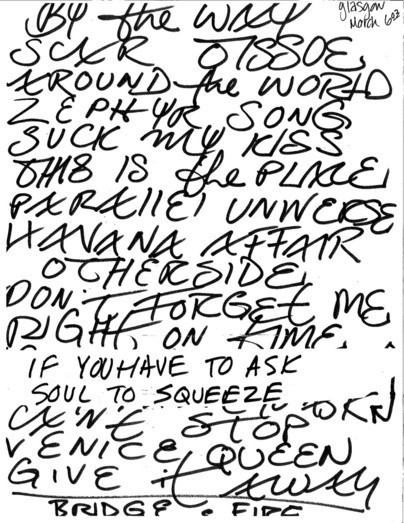 glasgow
March 6 03
BY the WAY
SCAR TISSUE
AROUND the WORLD
ZEPHYR SONG
SUCK MY KISS
THIS IS the PLACE
PARAllEl UNIVERSE
HAVANA AFFAIR
OTHERSIDE
DON'T FORGET ME
RIGHT ON TIME
IF YOU HAVE TO ASK
SOUL TO SQUEEZE
CAN'T STOP
VENICE QUEEN
GIVE it AWAY
BRIDGE